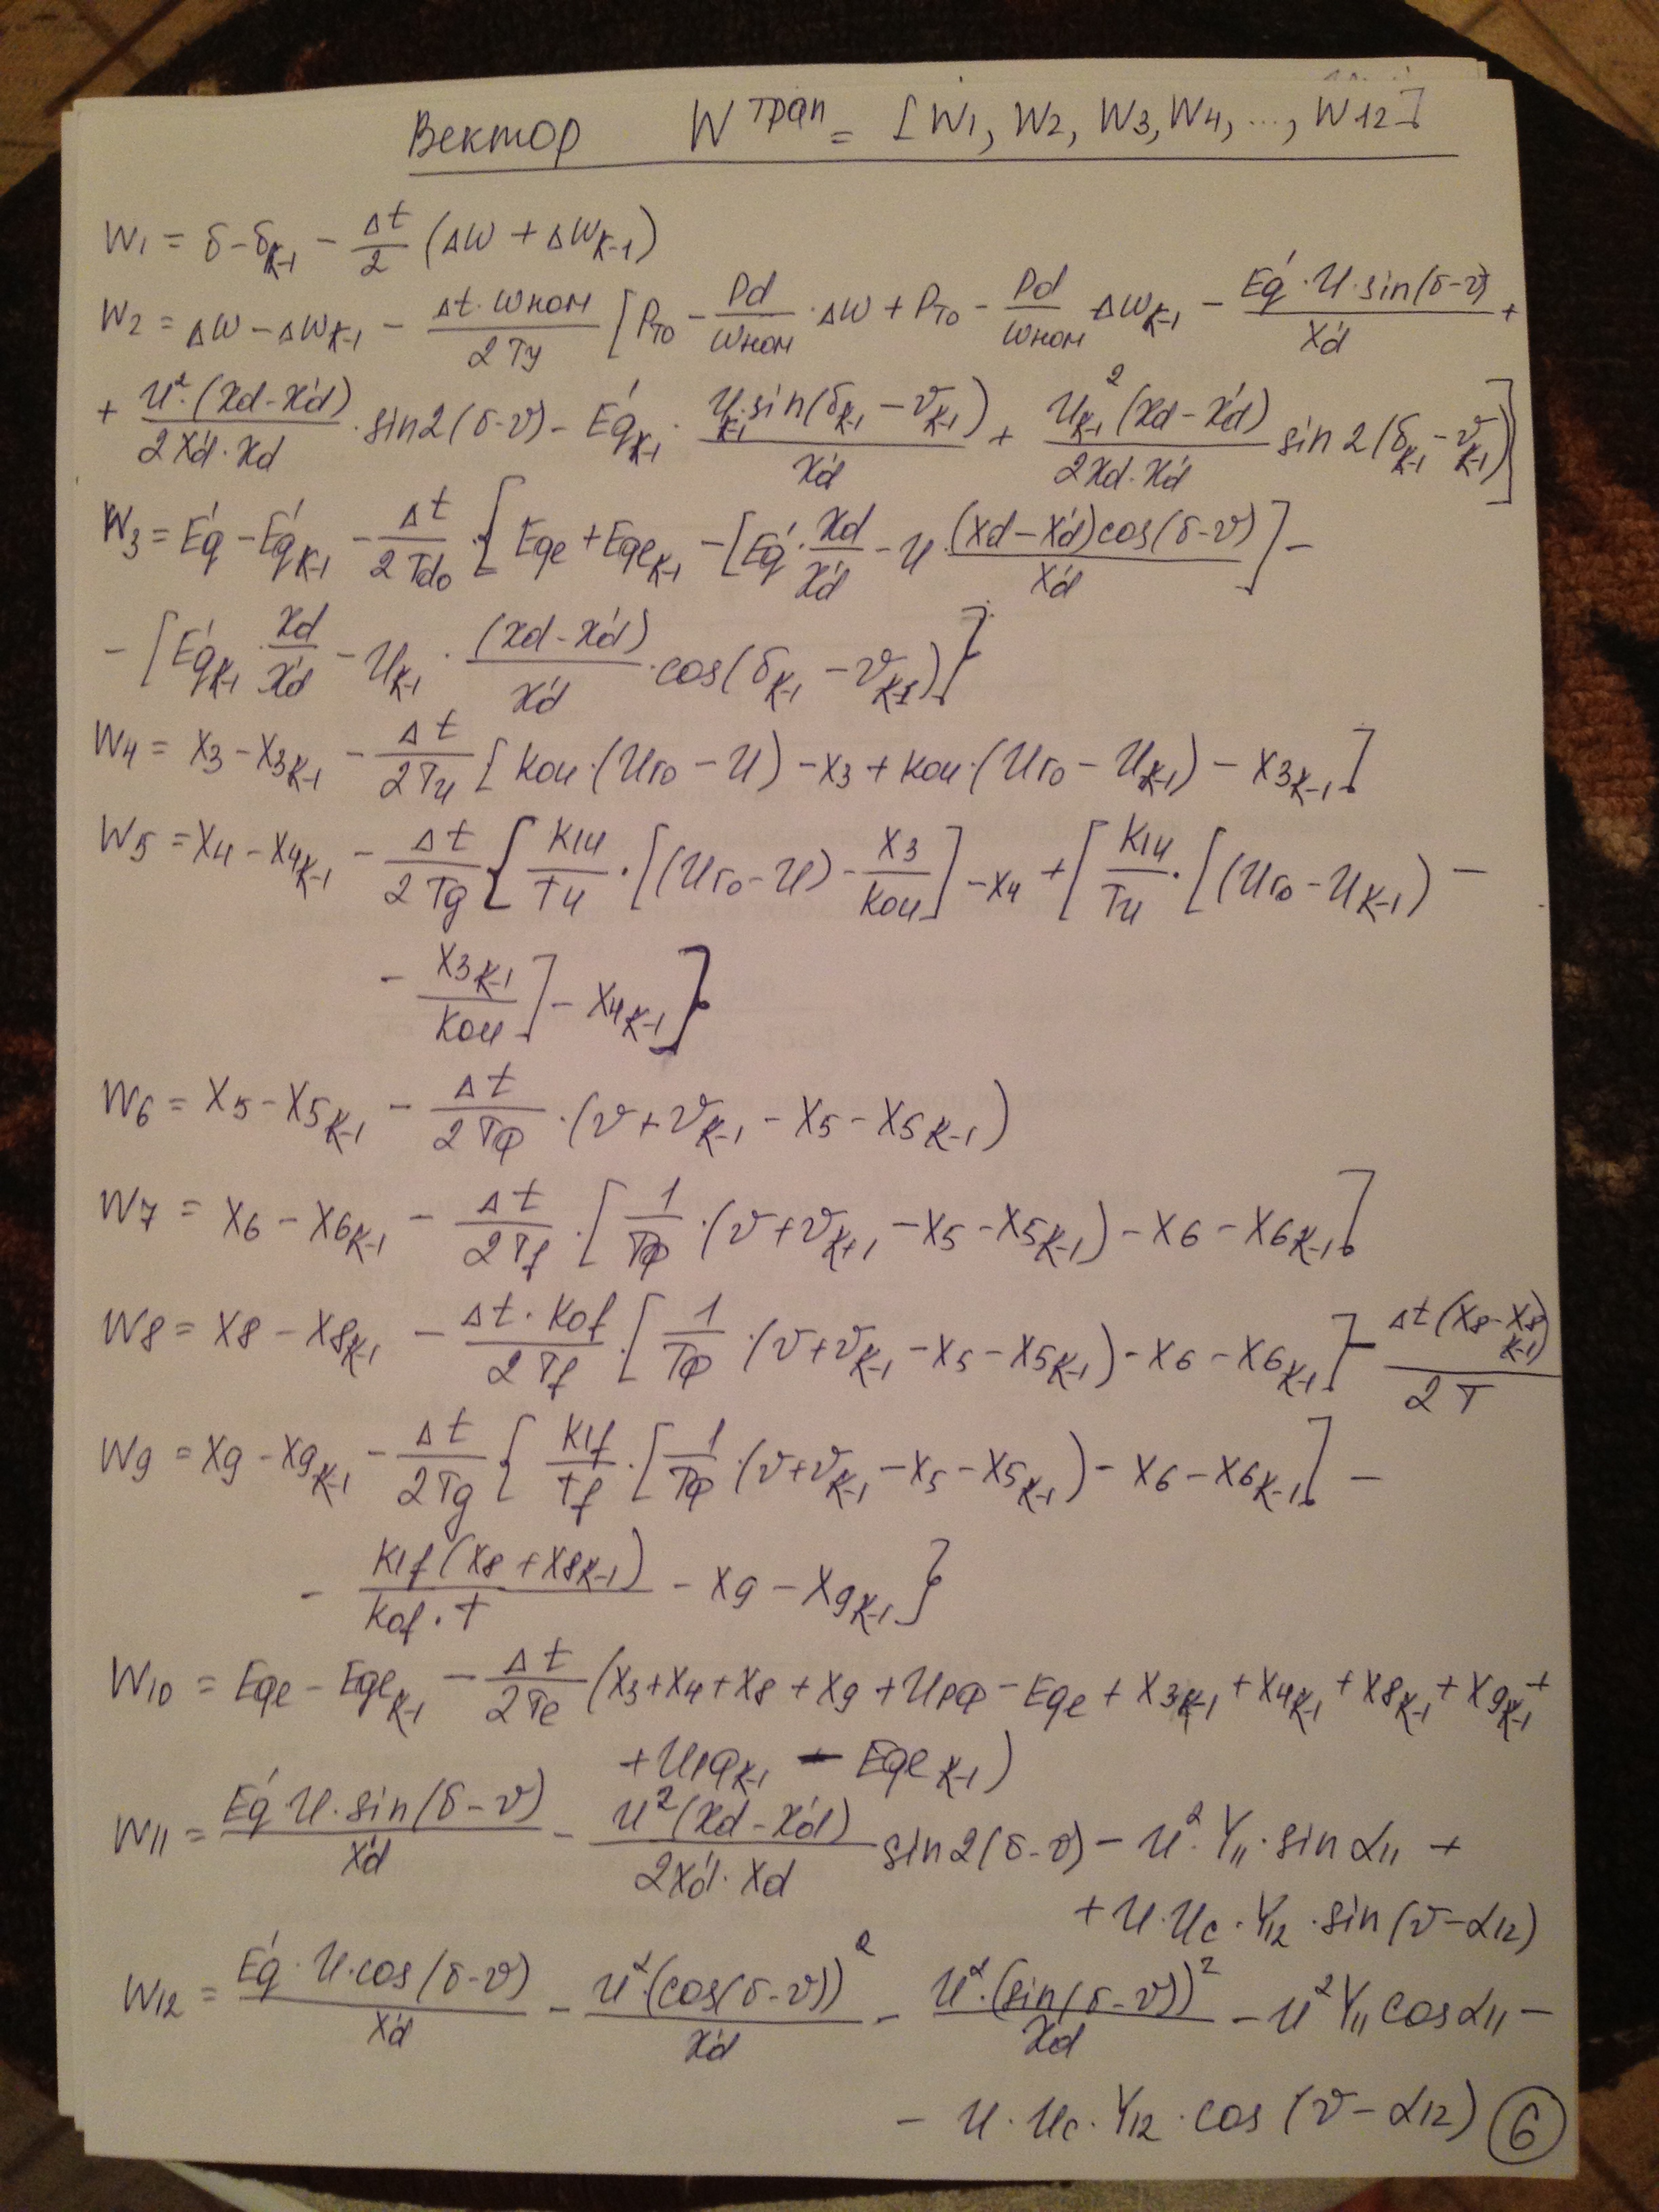 Вектор W^трап = [W1, W2, W3, W4, ..., W12]
W1 = δ − δ_{K-1} − Δt/2 (Δω + Δω_{K-1})
W2 = Δω − Δω_{K-1} − Δt·ωном/2Ty [P_{то} − Pd/ωном · Δω + P_{то} − Pd/ωном Δω_{K-1} − E'q·U·sin(δ−ϑ)/X'd +
+ U²·(Xd−X'd)/2X'd·Xd · sin2(δ−ϑ) − E'q_{K-1} · U_{K-1}·sin(δ_{K-1}−ϑ_{K-1})/X'd + U²_{K-1}(Xd−X'd)/2Xd·X'd sin2(δ_{K-1}−ϑ_{K-1})]
W3 = E'q − E'q_{K-1} − Δt/2Tdo · {Eqe + Eqe_{K-1} − [E'q · Xd/X'd − U · (Xd−X'd)cos(δ−ϑ)/X'd] −
− [E'q_{K-1} · Xd/X'd − U_{K-1} · (Xd−X'd)/X'd · cos(δ_{K-1} − ϑ_{K-1})]}
W4 = X3 − X3_{K-1} − Δt/2Tи [Kои·(Uго − U) − X3 + Kои·(Uго − U_{K-1}) − X3_{K-1}]
W5 = X4 − X4_{K-1} − Δt/2Tg {K1и/Tи · [(Uго − U) − X3/Kои] − X4 + [K1и/Tи · [(Uго − U_{K-1}) −
− X3_{K-1}/Kои] − X4_{K-1}}
W6 = X5 − X5_{K-1} − Δt/2Tф · (ϑ + ϑ_{K-1} − X5 − X5_{K-1})
W7 = X6 − X6_{K-1} − Δt/2Tf · [1/Tф · (ϑ + ϑ_{K+1} − X5 − X5_{K-1}) − X6 − X6_{K-1}]
W8 = X8 − X8_{K-1} − Δt·Kof/2Tf · [1/Tф · (ϑ + ϑ_{K-1} − X5 − X5_{K-1}) − X6 − X6_{K-1}] − Δt(X8−X8_{K-1})/2T
W9 = X9 − X9_{K-1} − Δt/2Tg {K1f/Tf · [1/Tф · (ϑ + ϑ_{K-1} − X5 − X5_{K-1}) − X6 − X6_{K-1}] −
− K1f(X8 + X8_{K-1})/Kof·T − X9 − X9_{K-1}}
W10 = Eqe − Eqe_{K-1} − Δt/2Te (X3 + X4 + X8 + X9 + UрФ − Eqe + X3_{K-1} + X4_{K-1} + X8_{K-1} + X9_{K-1} +
+ UрФ_{K-1} − Eqe_{K-1})
W11 = E'q·U·sin(δ−ϑ)/X'd − U²(Xd−X'd)/2X'd·Xd sin2(δ−ϑ) − U²·Y11·sin α11 +
+ U·Uc·Y12·sin(ϑ−α12)
W12 = E'q·U·cos(δ−ϑ)/X'd − U²·(cos(δ−ϑ))²/X'd − U²·(sin(δ−ϑ))²/Xd − U²Y11 cos α11 −
− U·Uc·Y12·cos(ϑ−α12) 6